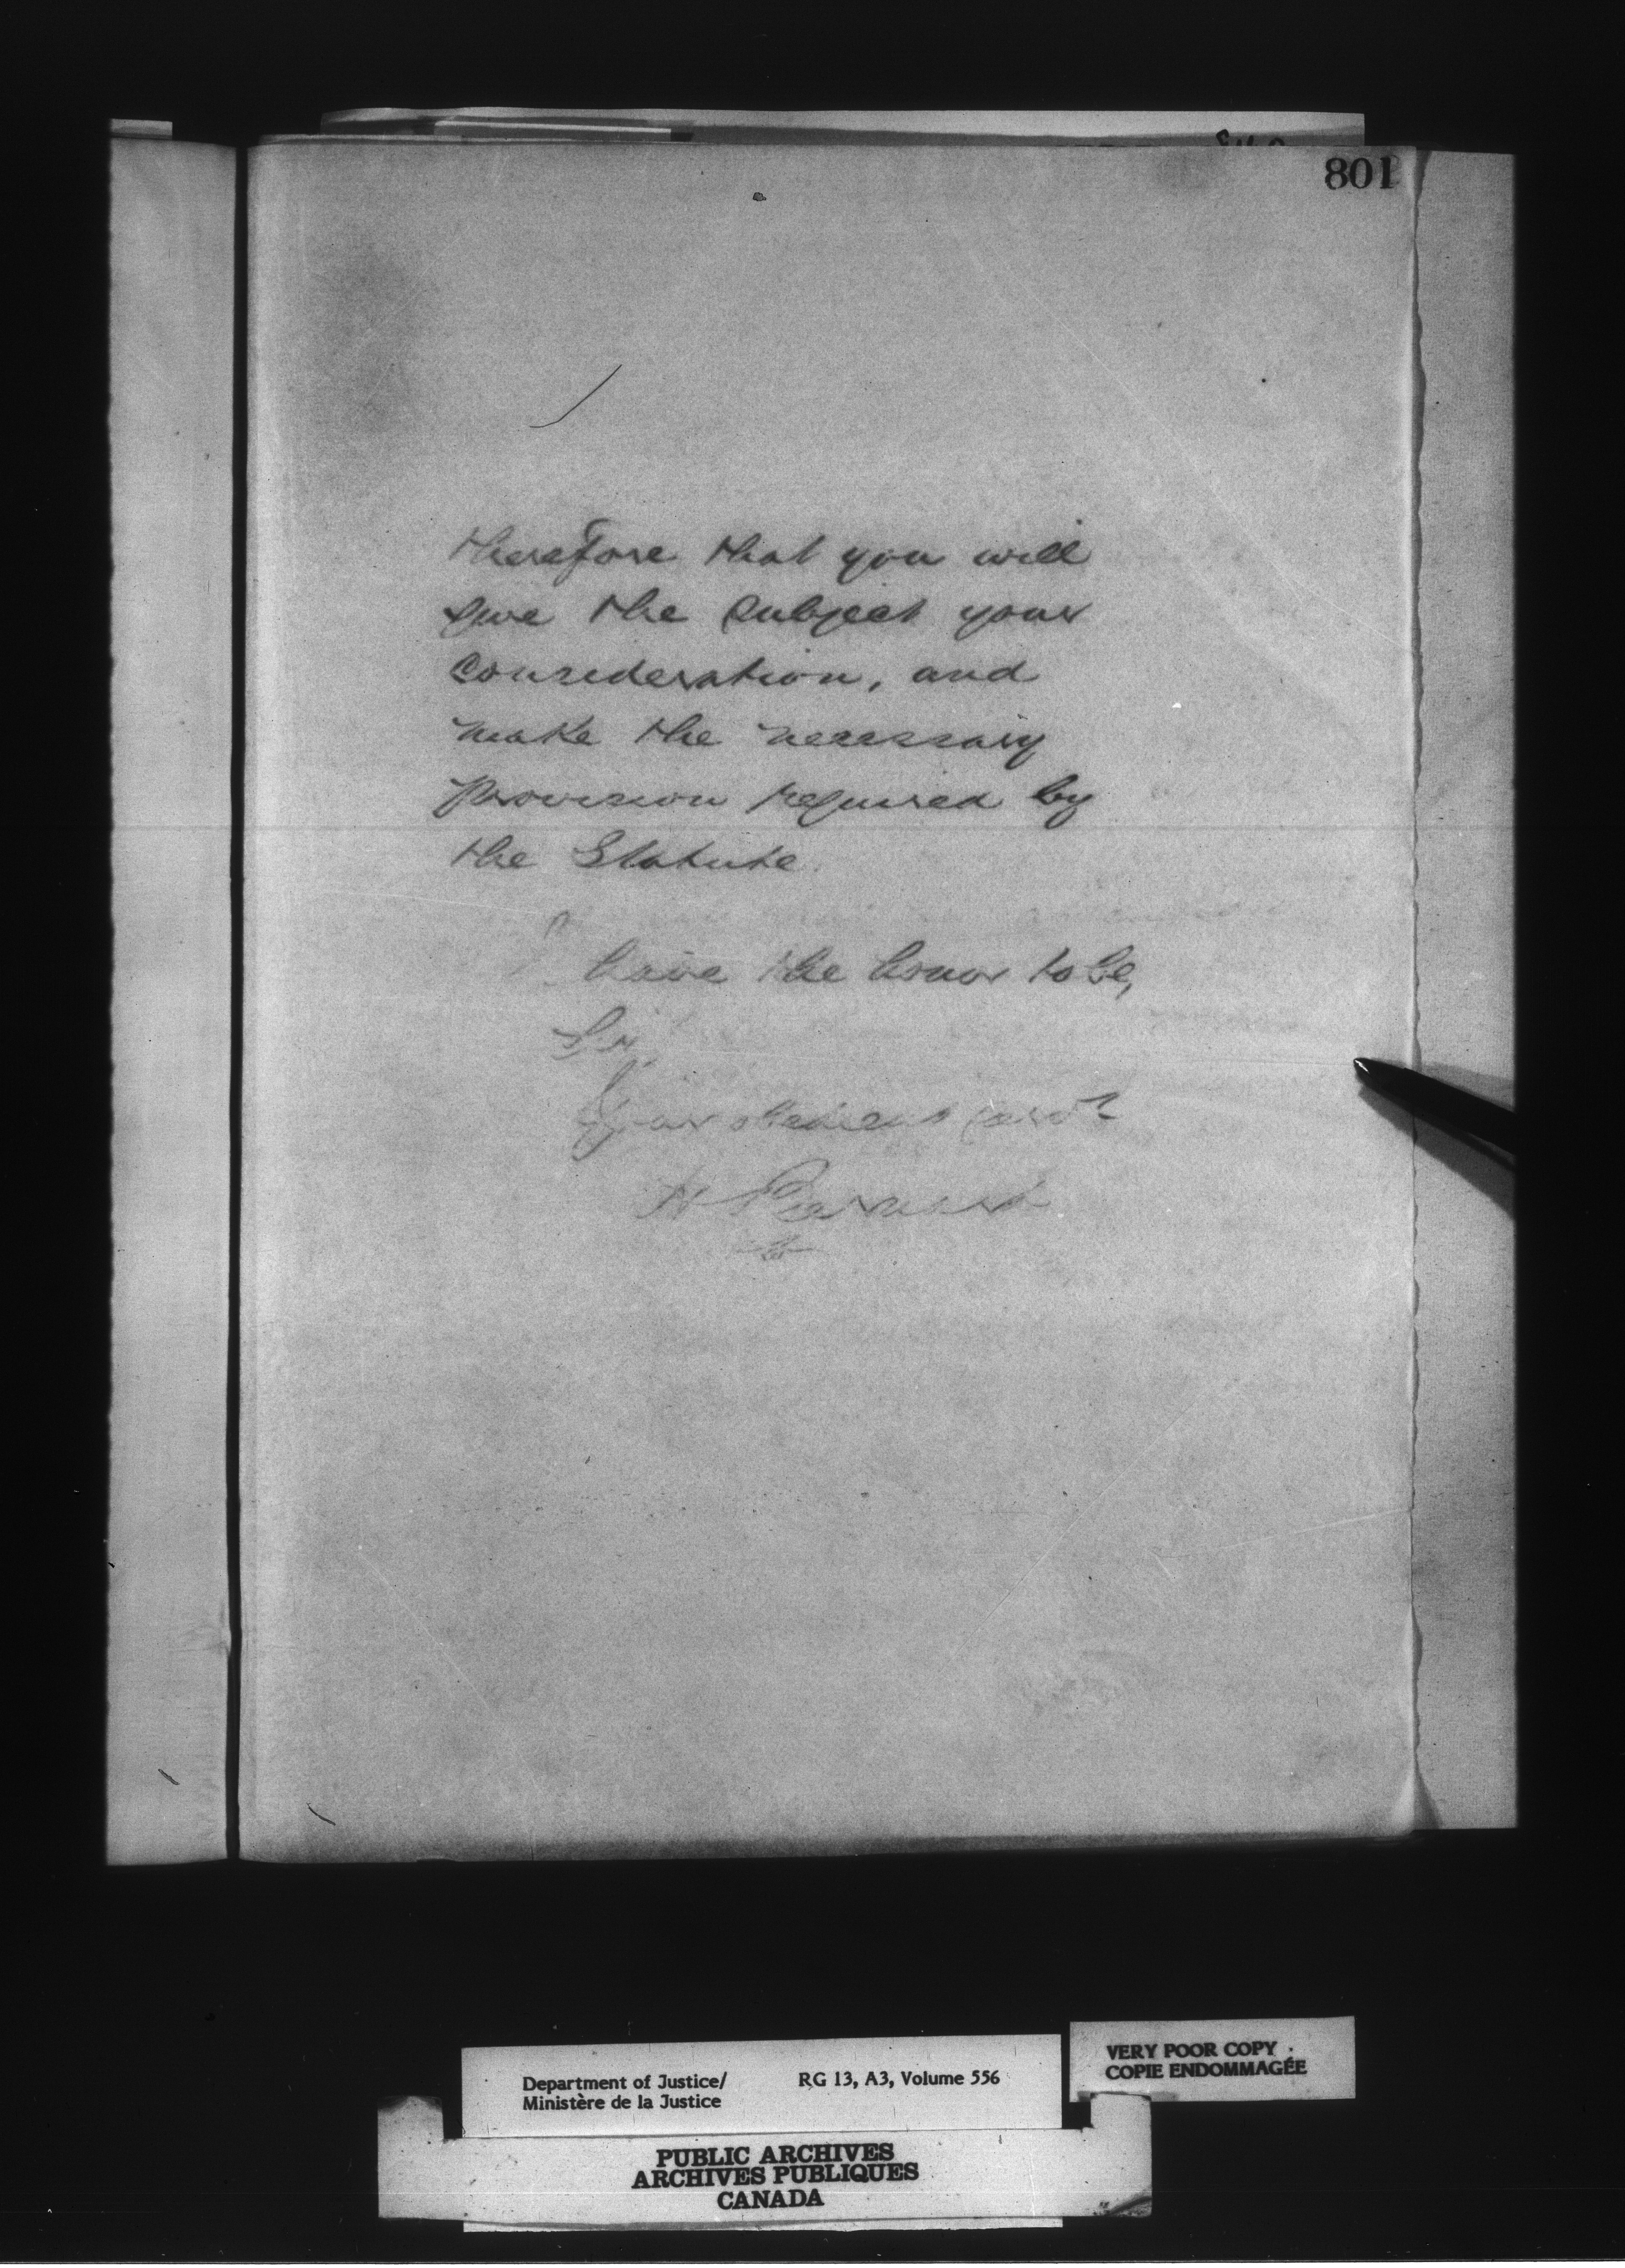 801
therefore that you will
give the subject your
consideration, and
make the necessary
provision required by
the Statute.
I have the honor to be,
Sir,
Your obedient servt
VERY POOR COPY
COPIE ENDOMMAGÉE
Department of Justice/ RG 13, A3, Volume 556
Ministère de la Justice
PUBLIC ARCHIVES
ARCHIVES PUBLIQUES
CANADA